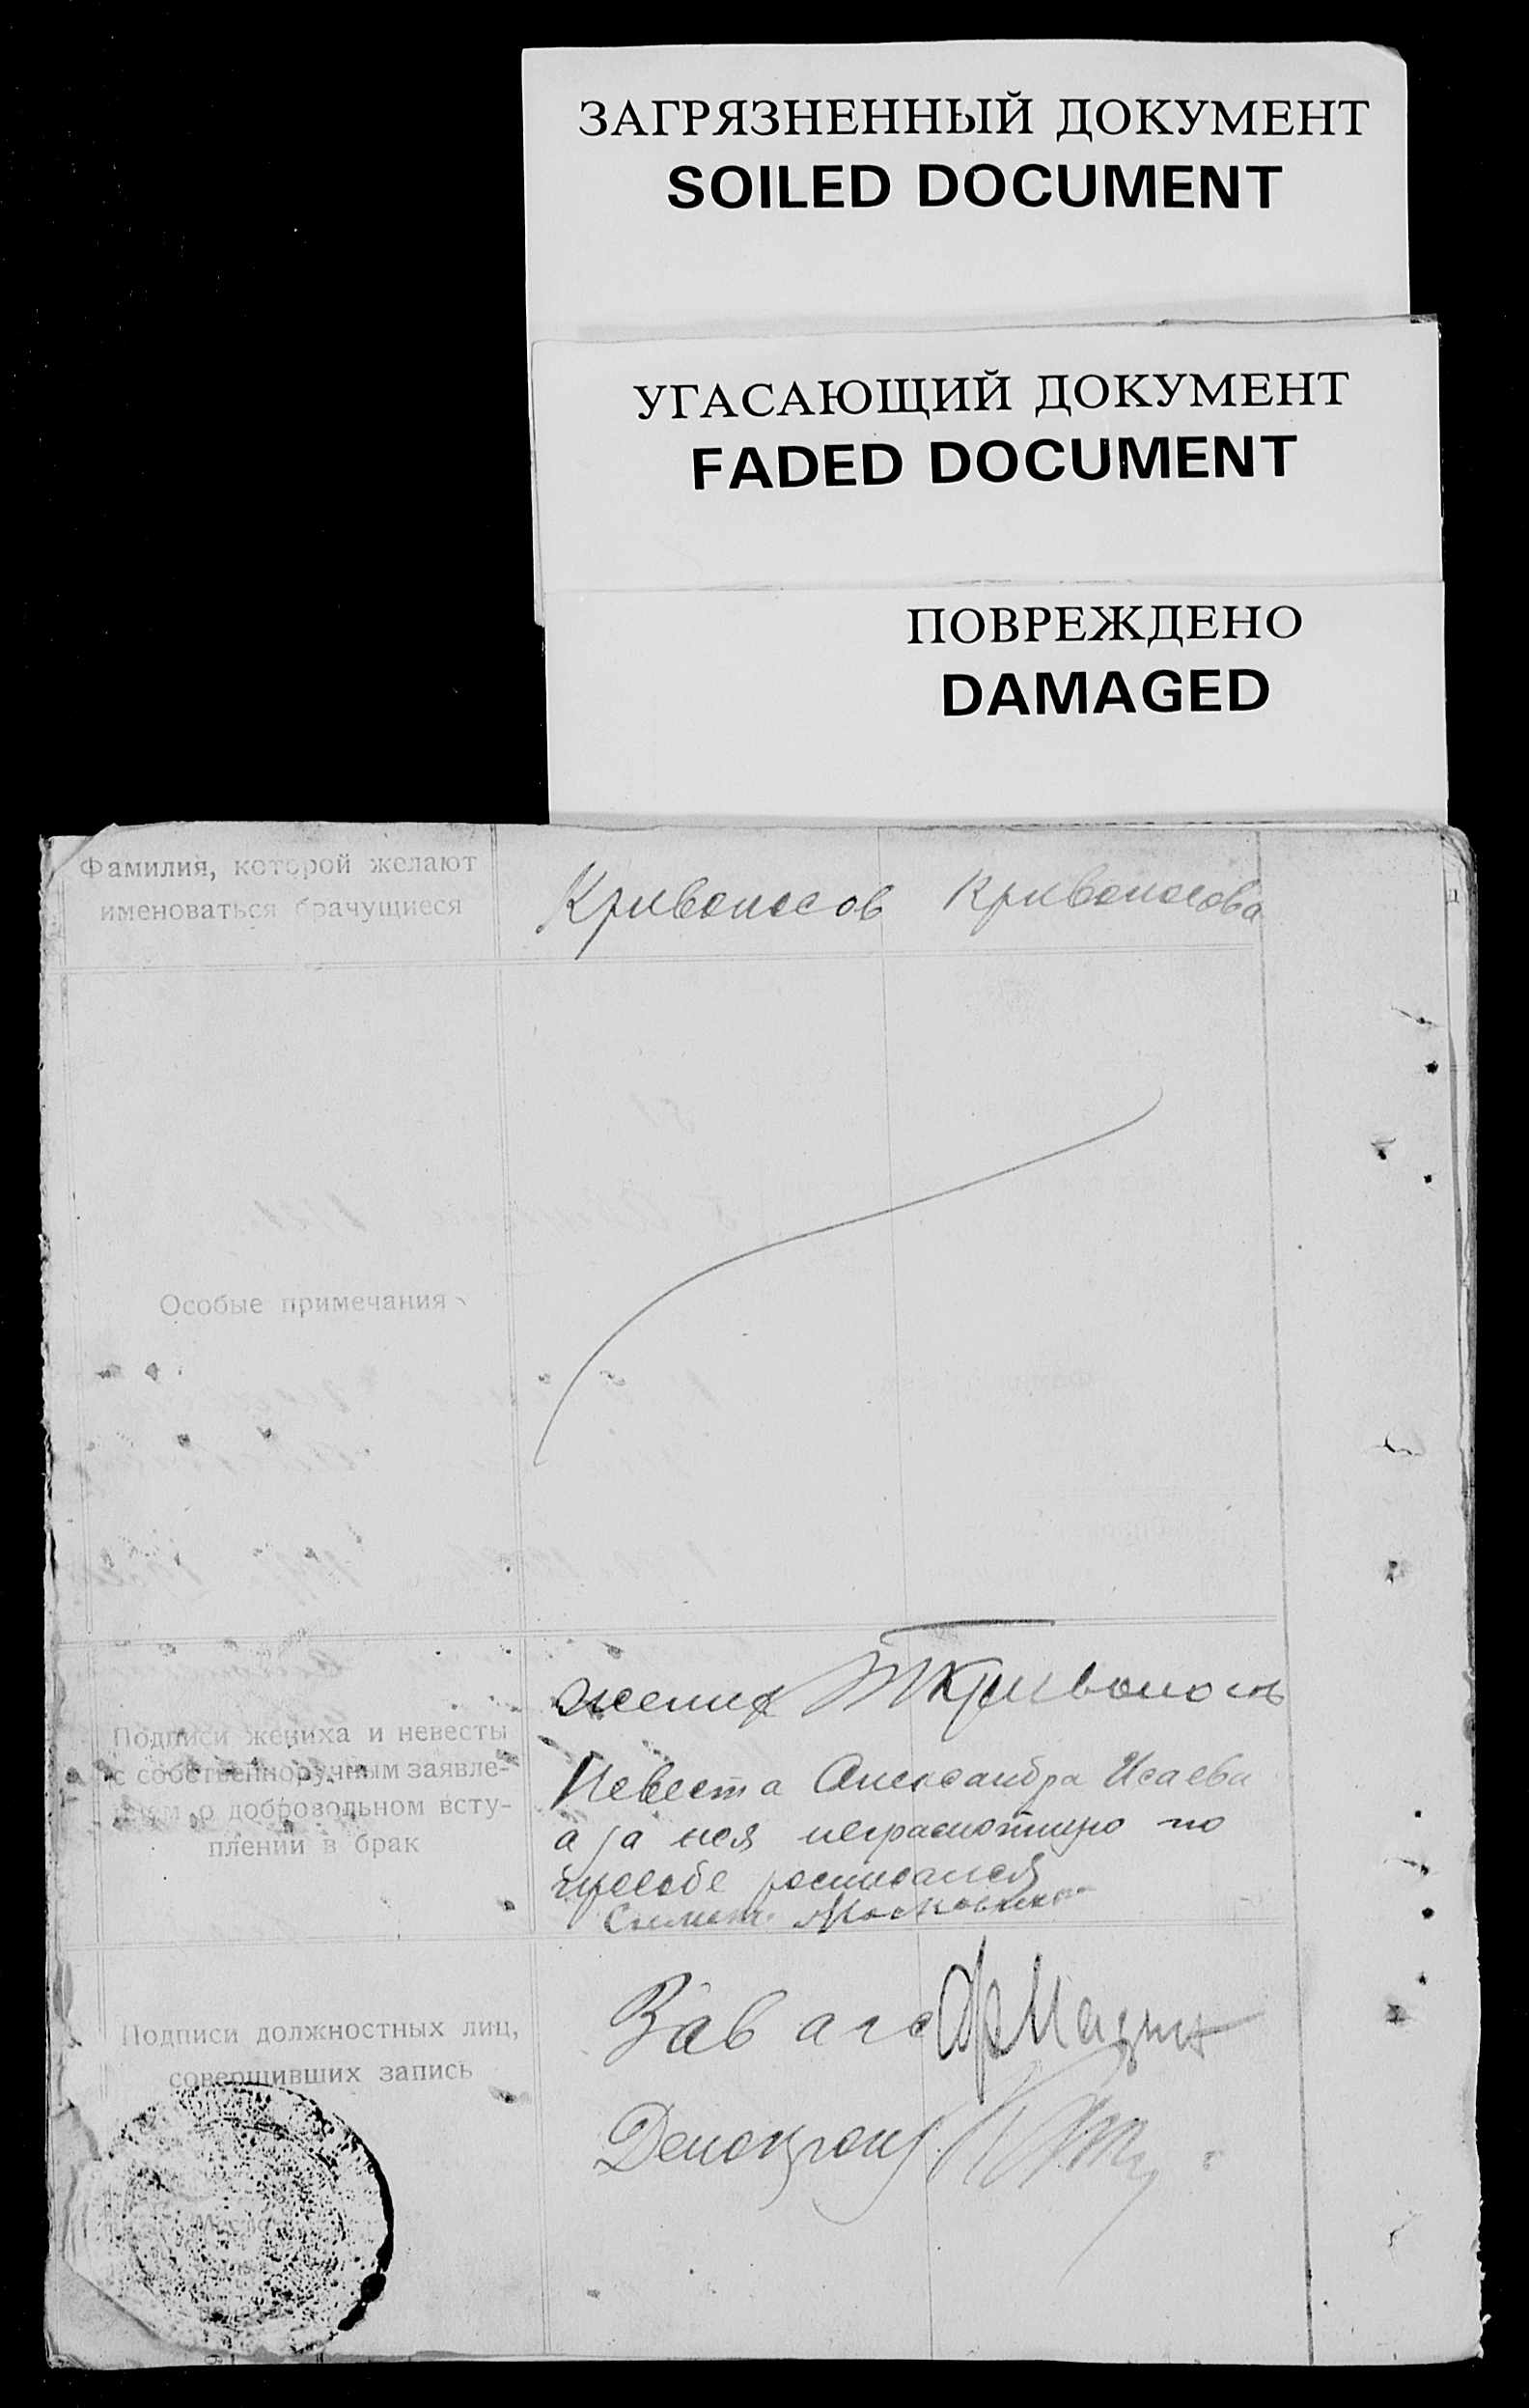 ЗАГРЯЗНЕННЫЙ ДОКУМЕНТ
SOILED DOCUMENT
УГАСАЮЩИЙ ДОКУМЕНТ
FADED DOCUMENT
ПОВРЕЖДЕНО
DAMAGED
Фамилия, которой желают
именоваться брачущиеся
Кривоносов Кривоносова
Особые примечания
Подписи жениха и невесты
с собственноручным заявле-
нием о добровольном всту-
плении в брак
жених Кривоносов
Невеста Александра Исаева
а за нея неграмотную по
прозбе росписался
Подписи должностных лиц,
совершивших запись
Зав